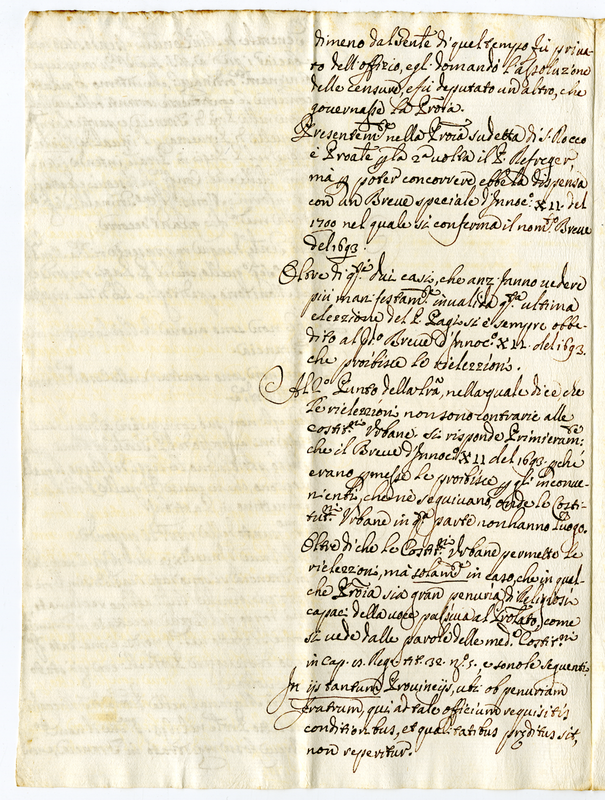 dimeno dal Sente di quel tempo fu priua-
to dell'offizio, egli domandò l'assoluzione
delle censure, e fù deputato un'altro, che
governasse la Proĩa.
Presentemte nella Proĩa sudetta di S. Rocco
è Proãle p la 2a uolta il P. Refreger,
mà p poter concorrere ebbe la dispensa
con un Breve speciale d'Innoc.o XII. del
1700 nel quale si conferma il nom.to Breve
del 1693.
Oltre di q.ti dui casi, che anzi fanno vedere
più manifestam.te invalida q.ta ultima
elezzione del P. Pagi, si è sempre obbe-
dito al d.o Breve d'Innoc.o XII. del 1693.
che proibisce le rielezzioni.
Al 2.o Punto della lrã, nella quale dice che
le rielezzioni non sono contrarie alle
costit.ni Vrbane. si risponde Primieram.te
che il Breve d'Innoc.o XII del 1693. pché
erano pmesse le proibisce p gl' inconve-
nienti, che ne seguivano, onde le Costi-
tut.ni Vrbane in q.ta parte non hanno luogo.
Oltre di che le Costit.ni Vrbane permette le
rielezzioni, mà solam.te in caso, che in qual-
che Proĩa sia gran penuria di Religiosi
capaci della voce passiva al Prolato, come
si vede dalle parole delle med.e Costit.ni
in cap. Reg. tit. 32. n.o 5. e sono le seguenti
In ijs tantum Prouincijs, ubi ob penuriam
fratrum, qui ad tale officium requisitis
conditionibus, et qualitatibus pręditus sit,
non reperitur.